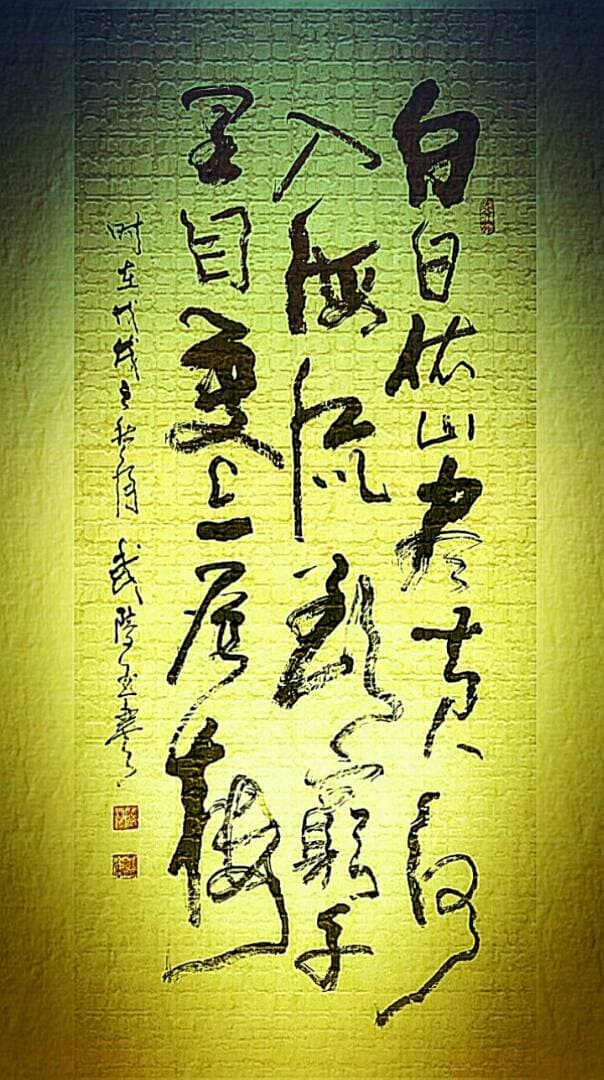 白日依山尽黄河
入海流欲窮千
里目更上一层楼
时在戊戌之秋 武陵